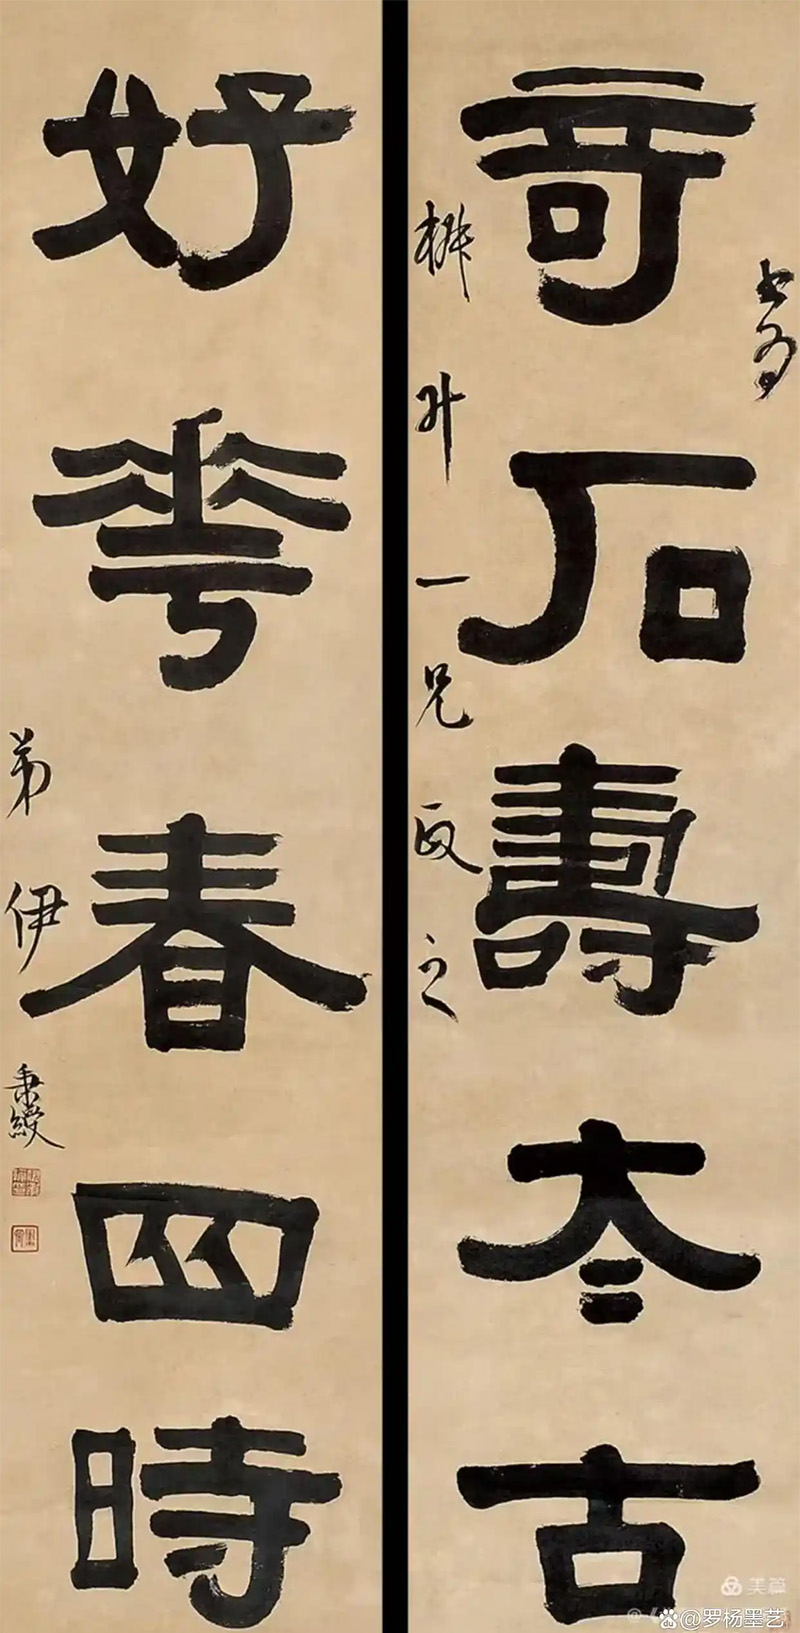 書為
奇石壽太古
升一兄政之
好華春四時
弟伊秉綬
美篇
@罗杨墨艺